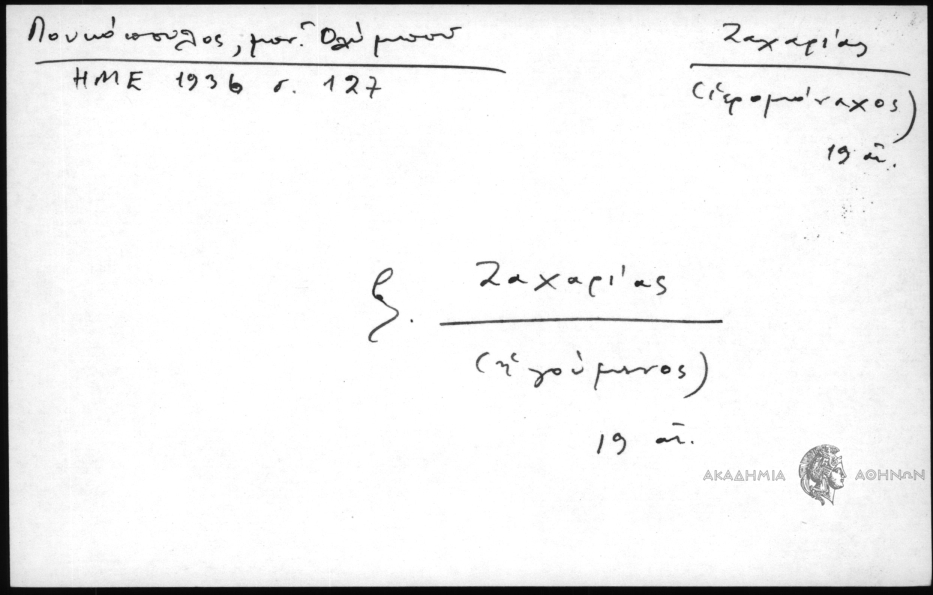 Λουκόπουλος, μον. Ὀλύμπου
ΗΜΕ 1936 σ. 127
Ζαχαρίας
(ἱερομόναχος)
19 αἰ.
Ζαχαρίας
(ἡγούμενος)
19 αἰ.
ΑΚΑΔΗΜΙΑ ΑΘΗΝΩΝ